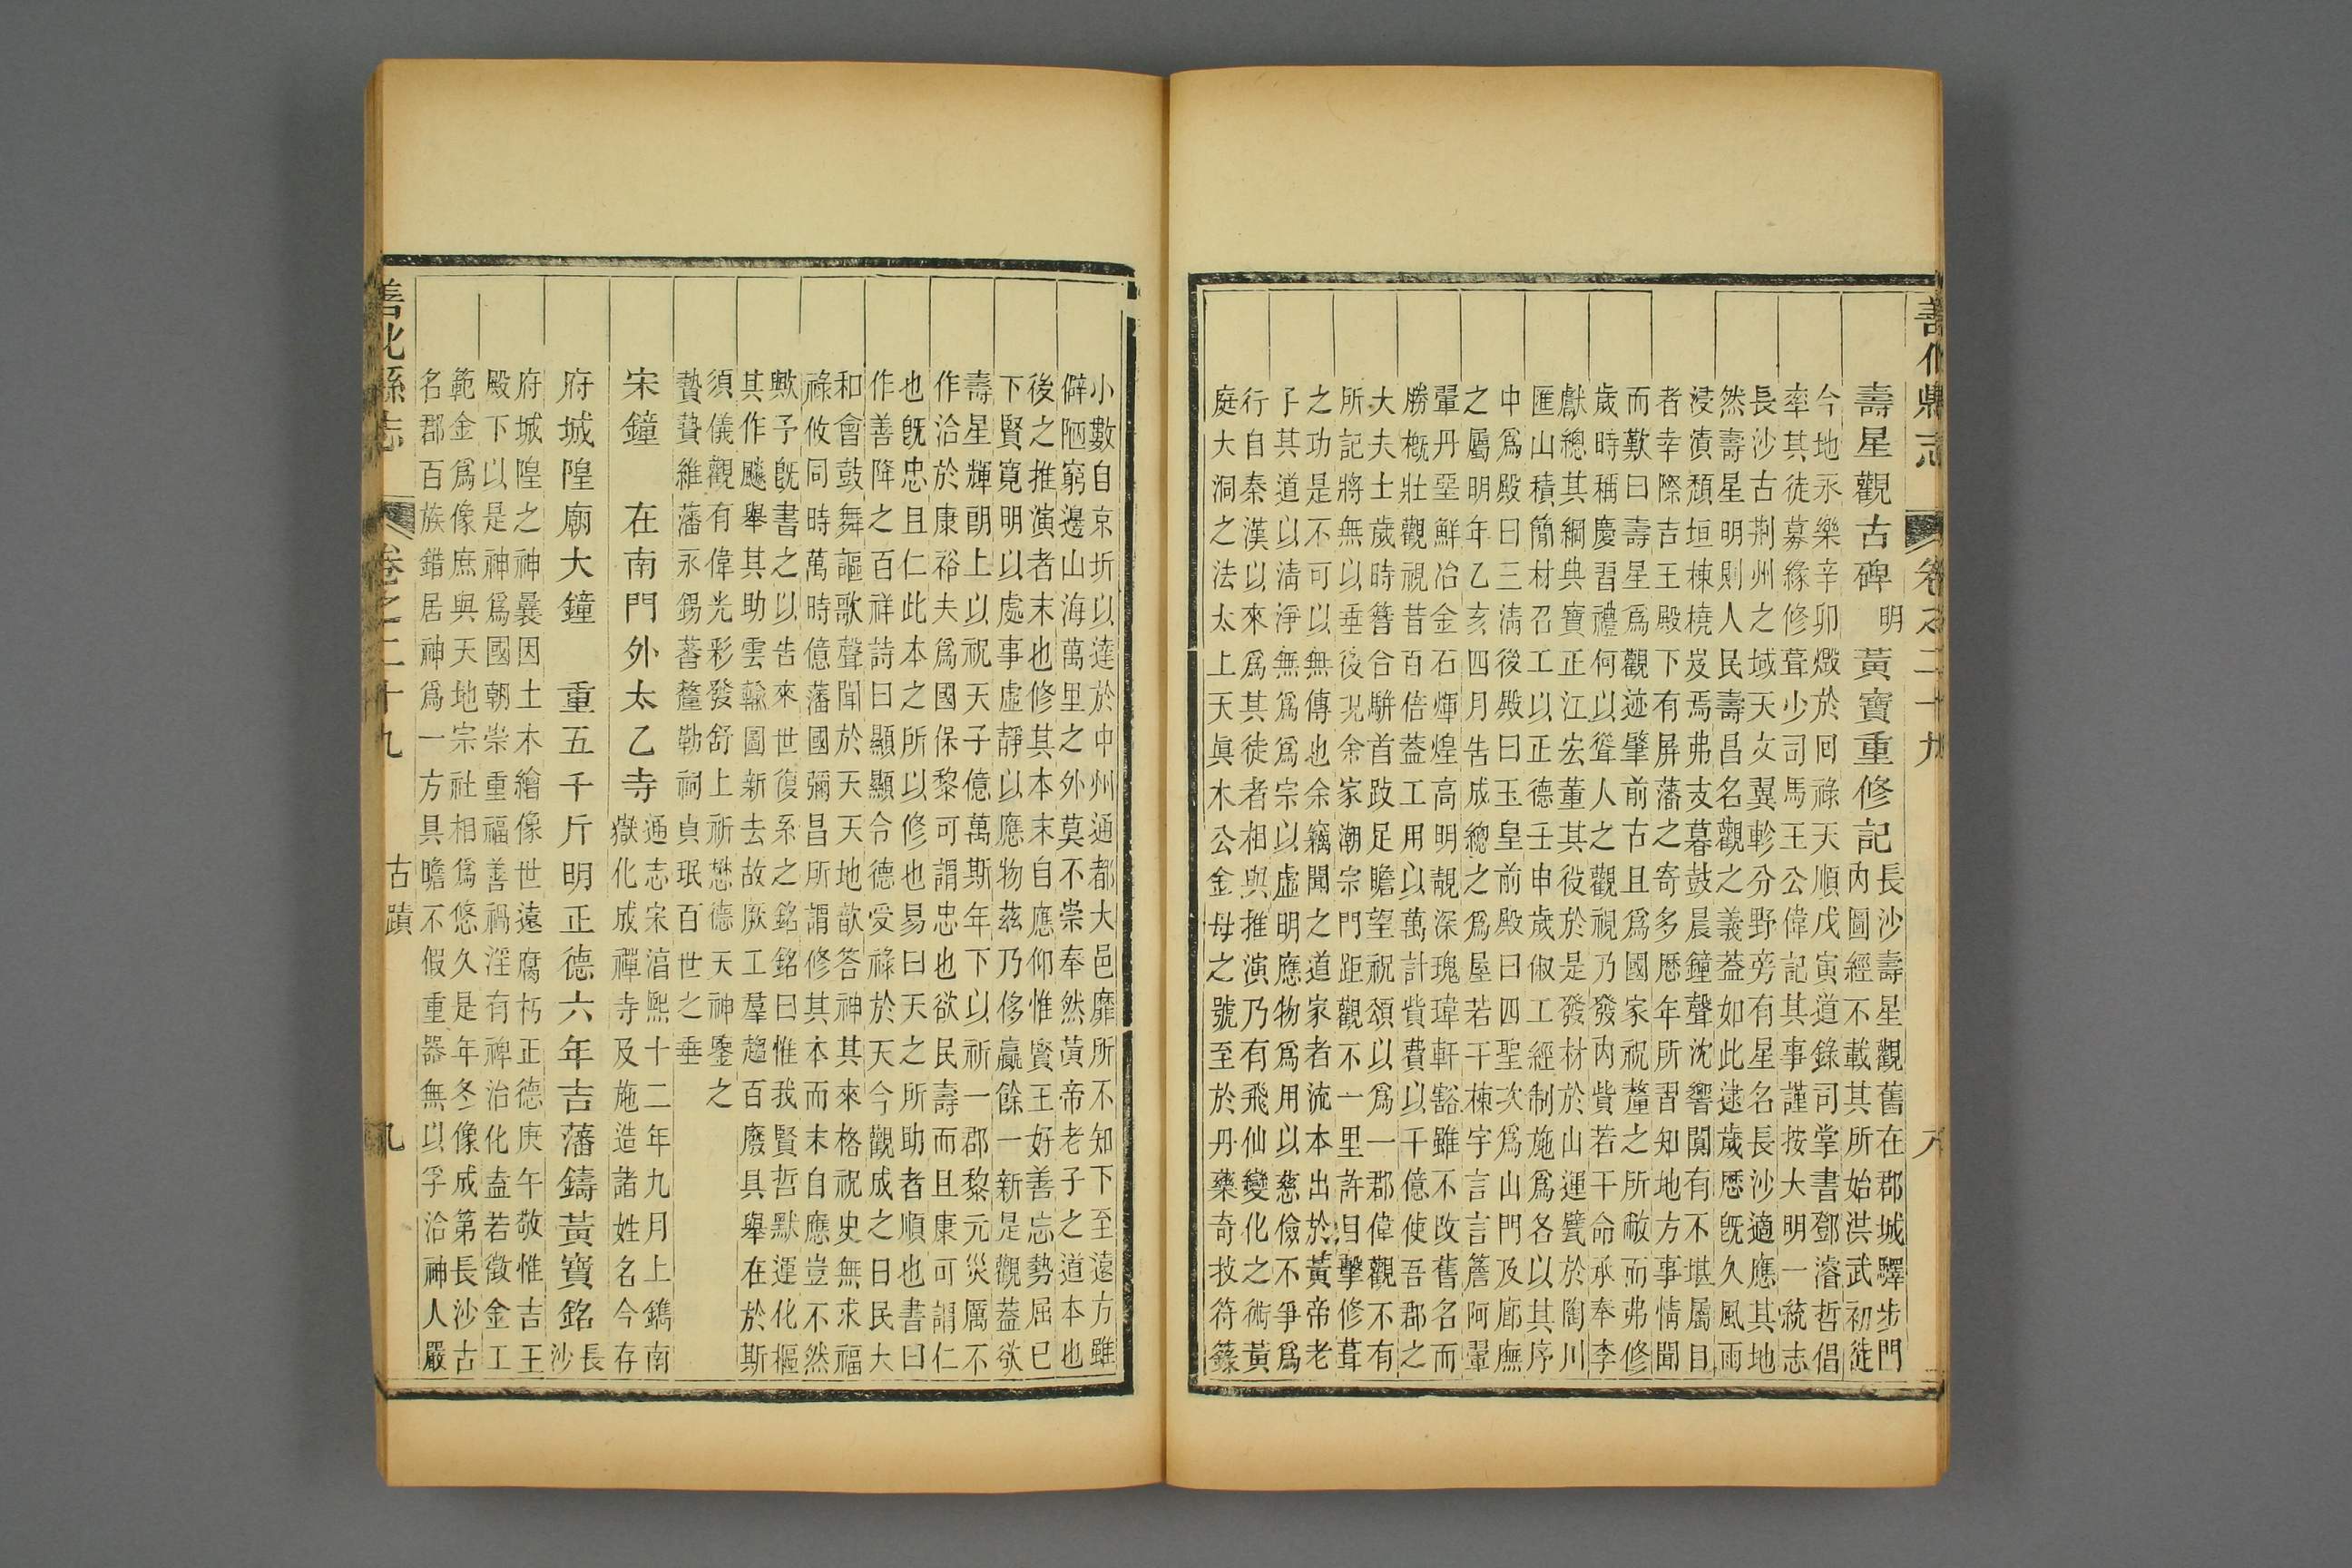 善化縣志
卷之二十九
八
壽星觀古碑
明
黃寶重修記
長沙壽星觀舊在郡城驛步門
內圖經不載其所始洪武初徙
今地永樂辛卯燬於囘祿天順戊寅道錄司掌書鄧濬哲倡
率其徒募緣修葺少司馬王公偉記其事謹按大明一統志
長沙古荆州之域天文翼軫分野旁有星名長沙適應其地
然壽星明則人民壽昌名觀之義葢如此逮歲歷旣久風雨
浸漬頹垣棟橈岌焉弗支暮鼓晨鐘聲沈響闃有不堪屬目
者幸際吉王殿下有屏藩之寄多歷年所習知地方事情聞
而歎曰壽星爲觀迹肇前古且爲國家祝釐之所敝而弗修
歲時稱慶習禮何以聳人之觀視乃發內貲若干命承奉李
獻總其綱典寶正江宏董其役於是發材於山運甓於陶川
匯山積簡材召工以正德壬申歲俶工經制施爲各以其序
中爲殿曰三淸後殿曰玉皇前殿曰四聖次爲山門及廊廡
之屬明年乙亥四月吿成總之爲屋若干棟宇言言簷阿翬
翬丹堊鮮冶金石煇煌高明靚深瑰瑋軒豁雖不改舊名而
勝槪壯觀視昔百倍葢工用以萬計貲費以千億使吾郡之
大夫士歲時簪合駢首跂足瞻望祝頌以爲一郡偉觀不有
所記將無以垂後況余家潮宗門距觀不一里許目擊修葺
之功是不可以無傳也余竊聞之道家者流本出於黃帝老
子其道以淸淨無爲爲宗以虛明應物爲用以慈儉不爭爲
行自秦漢以來爲其徒者相與推演乃有飛仙變化之術黃
庭大洞之法太上天眞木公金母之號至於丹藥奇技符籙
小數自京圻以達於中州通都大邑靡所不知下至遠方雖
僻陋窮邊山海萬里之外莫不崇奉然黃帝老子之道本也
後之推演者末也修其本末自應仰惟賢王好善忘勢屈已
下賢寬明以處事虛靜以應物茲乃侈贏餘一新是觀葢欲
壽星輝朗上以祝天子億萬斯年下以祈一郡黎元災厲不
作洽於康裕夫爲國保黎可謂忠也欲民壽而且康可謂仁
也旣忠且仁此本之所以修也易曰天之所助者順也書曰
作善降之百祥詩曰顯顯令德受祿於天今觀成之日民大
和會鼓舞謳歌聲聞於天天地歆答神其來格祝史無求福
祿攸同時萬時億藩國彌昌所謂修其本而末自應豈不然
歟予旣書之以告來世復系之銘銘曰惟我賢哲默運化樞
其作颷舉其助雲輸圖新去故厥工羣趨百廢具舉在於斯
須儀觀有偉光彩發舒上祈懋德天神鑒之
蟄蟄維藩永錫蕃釐勒祠貞珉百世之垂
宋鐘　在南門外太乙寺
通志宋湻熙十二年九月上鐫南
嶽化成禪寺及施造諸姓名今存
府城隍廟大鐘　重五千斤明正德六年吉藩鑄黃寶銘
長
沙
府城隍之神曩因土木繪像世遠腐朽正德庚午敬惟吉王
殿下以是神爲國朝崇重福善禍淫有裨治化盍若徵金工
範金爲像庶與天地宗社相爲悠久是年冬像成第長沙古
名郡百族錯居神爲一方具瞻不假重器無以孚洽神人嚴
善化縣志
卷之二十九
古蹟
九